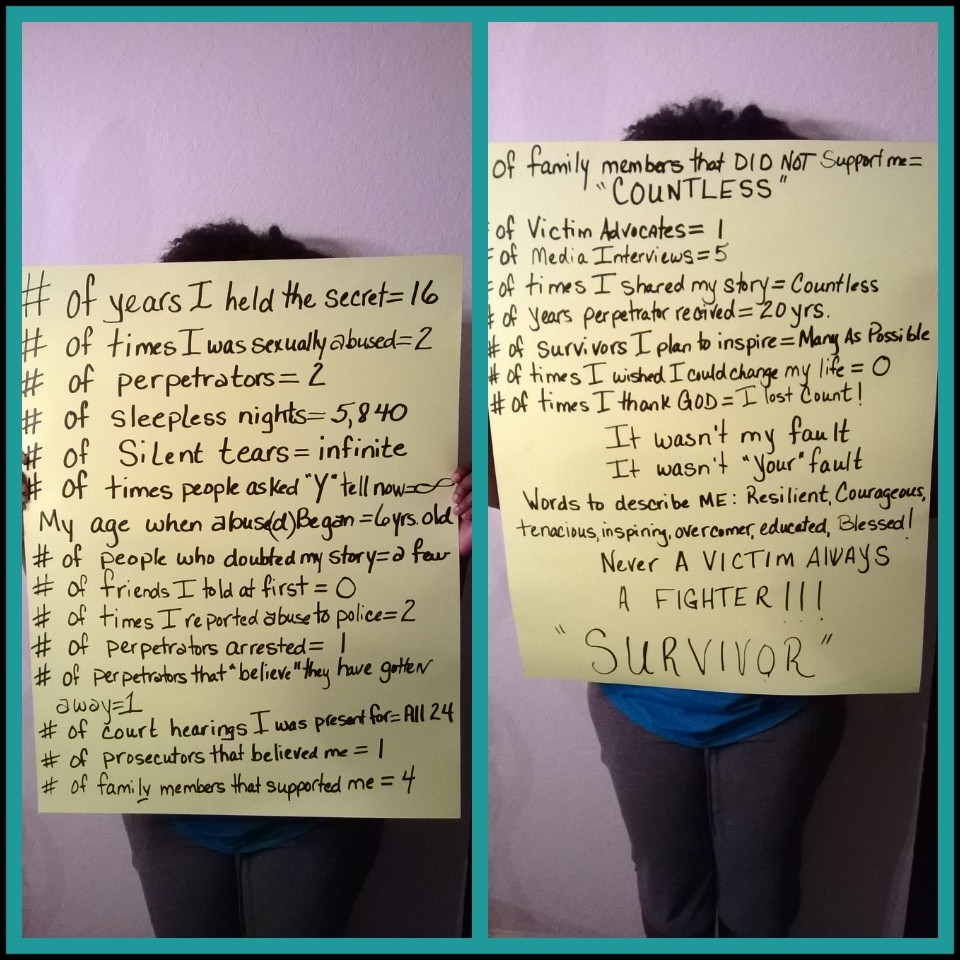 # of years I held the secret=16
# of times I was sexually abused=2
# of perpetrators=2
# of sleepless nights=5,840
# of Silent tears=infinite
# of times people asked "Y" tell now=∞
My age when abus(d)Began=6yrs.old
# of people who doubted my story=a few
# of friends I told at first=0
# of times I reported abuse to police=2
# of perpetrators arrested=1
# of perpetrators that "believe" they have gotten
away=1
# of court hearings I was present for=All 24
# of prosecutors that believed me=1
# of family members that supported me=4
of family members that DID NOT Support me=
"COUNTLESS"
# of Victim Advocates=1
# of Media Interviews=5
# of times I shared my story=Countless
# of years perpetrator recived=20yrs.
# of survivors I plan to inspire=Many As Possible
# of times I wished I could change my life=0
# of times I thank GOD=I lost Count!
It wasn't my fault
It wasn't "your" fault
Words to describe ME: Resilient, Courageous,
tenacious, inspiring, overcomer, educated, Blessed!
Never A VICTIM AlWAYS
A FIGHTER!!!
"SURVIVOR"